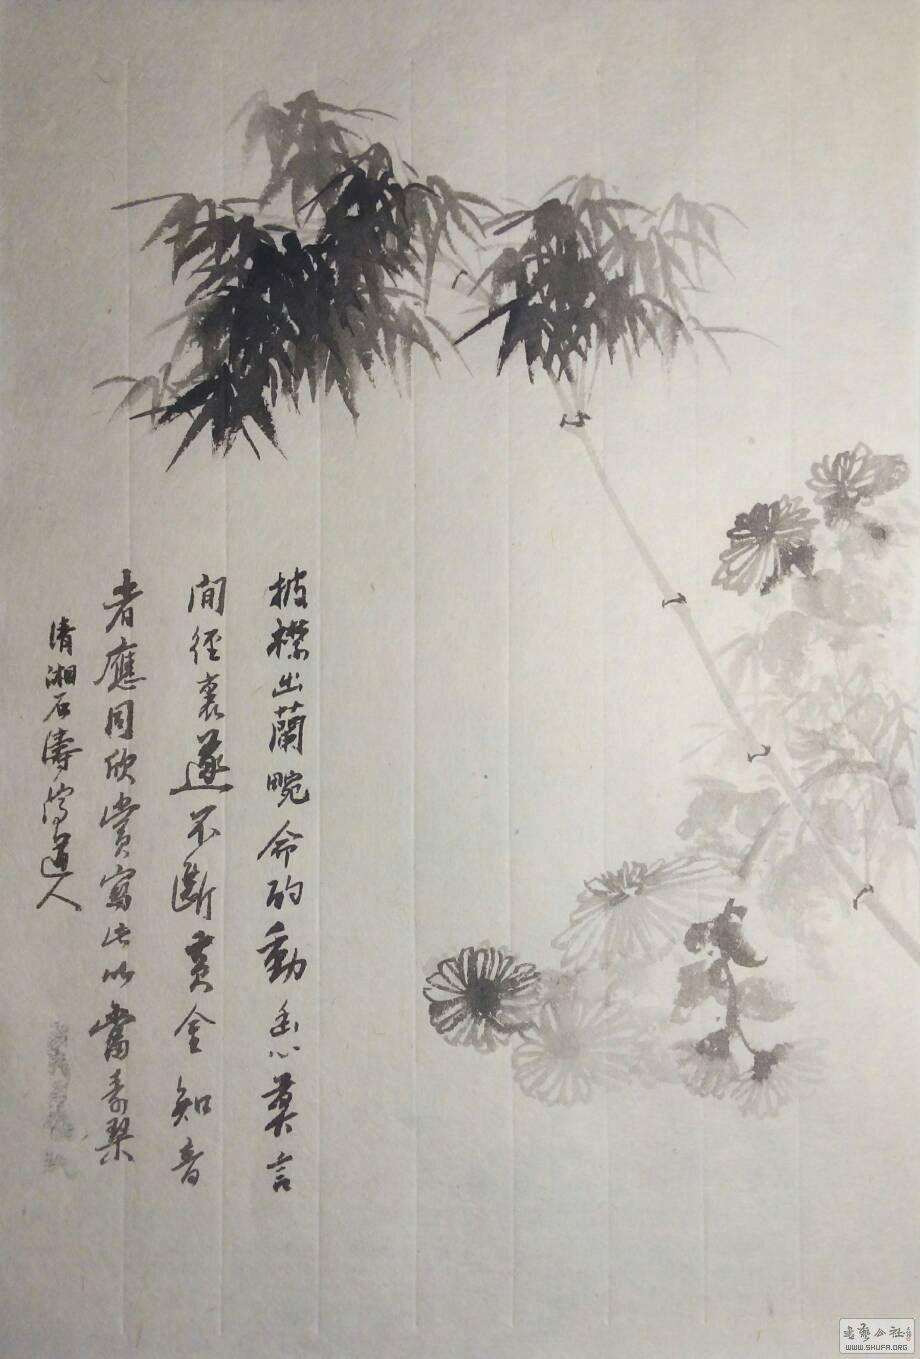 披襟出蘭畹命酌動幽心莫言
閒徑裏遂不斷黃金知音
者應同欣賞寫此以當素琴
清湘石濤濟道人
書藝公社
WWW.SHUFA.ORG